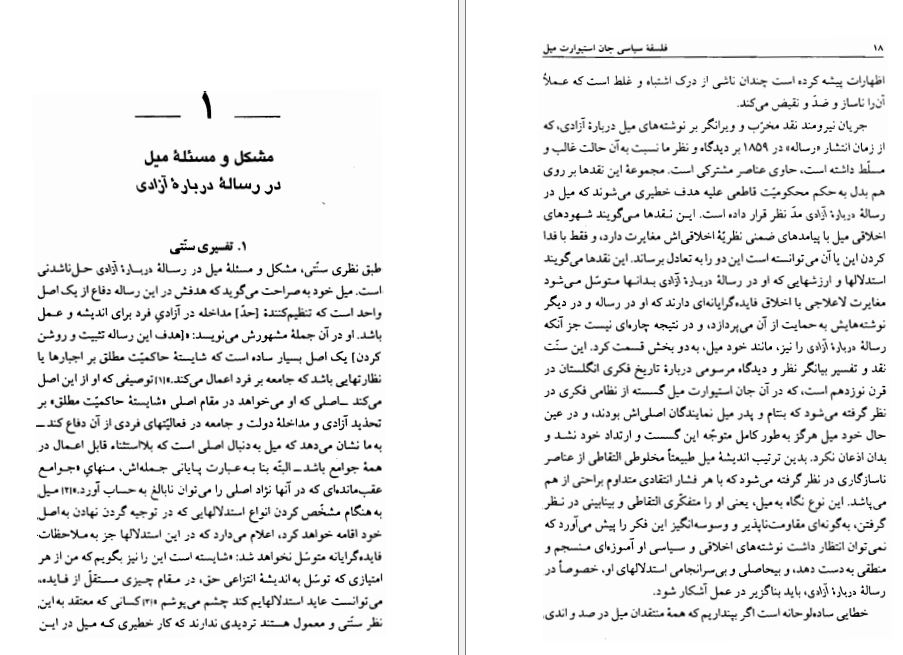 ۱۸ فلسفهٔ سیاسی جان استیوارت میل
اظهارات پیشه کرده است چندان ناشی از درک اشتباه و غلط است که عملاً
آن‌را ناساز و ضدّ و نقیض می‌کند.
جریان نیرومند نقد مخرّب و ویرانگر بر نوشته‌های میل دربارهٔ آزادی، که
از زمان انتشار «رساله» در ۱۸۵۹ بر دیدگاه و نظر ما نسبت به‌آن حالت غالب و
مسلّط داشته است، حاوی عناصر مشترکی است. مجموعهٔ این نقدها بر روی
هم بدل به‌حکم محکومیّت قاطعی علیه هدف خطیری می‌شوند که میل در
رسالهٔ دربارهٔ آزادی مدّ نظر قرار داده است. این نقدها می‌گویند شهودهای
اخلاقی میل با پیامدهای ضمنی نظریّهٔ اخلاقی‌اش مغایرت دارد، و فقط با فدا
کردن این یا آن می‌توانسته است این دو را به تعادل برساند. این نقدها می‌گویند
استدلالها و ارزشهایی که او در رسالهٔ دربارهٔ آزادی بدانها متوسّل می‌شود
مغایرت لاعلاجی با اخلاق فایده‌گرایانه‌ای دارند که او در رساله و در دیگر
نوشته‌هایش به‌حمایت از آن می‌پردازد، و در نتیجه چاره‌ای نیست جز آنکه
رسالهٔ دربارهٔ آزادی را نیز، مانند خود میل، به‌دو بخش قسمت کرد. این سنّت
نقد و تفسیر بیانگر نظر و دیدگاه مرسومی دربارهٔ تاریخ فکری انگلستان در
قرن نوزدهم است، که در آن جان استیوارت میل گسسته از نظامی فکری در
نظر گرفته می‌شود که بنتام و پدر میل نمایندگان اصلی‌اش بودند، و در عین
حال خود میل هرگز به‌طور کامل متوجّه این گسست و ارتداد خود نشد و
بدان اذعان نکرد. بدین ترتیب اندیشهٔ میل طبیعتاً مخلوطی التقاطی از عناصر
ناسازگاری در نظر گرفته می‌شود که با هر فشار انتقادی متداوم براحتی از هم
می‌پاشد. این نوع نگاه به‌میل، یعنی او را متفکّری التقاطی و بینابینی در نظر
گرفتن، به‌گونه‌ای مقاومت‌ناپذیر و وسوسه‌انگیز این فکر را پیش می‌آورد که
نمی‌توان انتظار داشت نوشته‌های اخلاقی و سیاسی او آموزه‌ای منسجم و
منطقی به‌دست دهد، و بیحاصلی و بی‌سرانجامی استدلالهای او، خصوصاً در
رسالهٔ دربارهٔ آزادی، باید بناگزیر در عمل آشکار شود.
خطایی ساده‌لوحانه است اگر بپنداریم که همهٔ منتقدان میل در صد و اندی
۱
مشکل و مسئلهٔ میل
در رسالهٔ دربارهٔ آزادی
۱. تفسیری سنّتی
طبق نظری سنّتی، مشکل و مسئلهٔ میل در رسالهٔ دربارهٔ آزادی حل‌ناشدنی
است. میل خود به صراحت می‌گوید که هدفش در این رساله دفاع از یک اصل
واحد است که تنظیم‌کنندهٔ [حدّ] مداخله در آزادیِ فرد برای اندیشه و عمل
باشد. او در آن جملهٔ مشهورش می‌نویسد: «[هدف این رساله تثبیت و روشن
کردن] یک اصل بسیار ساده است که شایستهٔ حاکمیّت مطلق بر اجبارها یا
نظارتهایی باشد که جامعه بر فرد اعمال می‌کند.»[۱] توصیفی که او از این اصل
می‌کند ــ اصلی که او می‌خواهد در مقام اصلی «شایستهٔ حاکمیّت مطلق» بر
تحدید آزادی و مداخلهٔ دولت و جامعه در فعالیّتهای فردی از آن دفاع کند ــ
به ما نشان می‌دهد که میل به‌دنبال اصلی است که بلااستثناء قابل اعمال در
همهٔ جوامع باشد ــ البتّه بنا به عبارت پایانی جمله‌اش، منهای «جوامع
عقب‌مانده‌ای که در آنها نژاد اصلی را می‌توان نابالغ به حساب آورد.»[۲] میل
به هنگام مشخّص کردن انواع استدلالهایی که در توجیه گردن نهادن به‌اصل
خود اقامه خواهد کرد، اعلام می‌دارد که در این استدلالها جز به ملاحظات
فایده‌گرایانه متوسّل نخواهد شد: «شایسته است این را نیز بگویم که من از هر
امتیازی که توسّل به‌اندیشهٔ انتزاعی حق، در مقام چیزی مستقلّ از فایده،
می‌توانست عاید استدلالهایم کند چشم می‌پوشم.»[۳] کسانی که معتقد به این
نظر سنّتی و معمول هستند تردیدی ندارند که کار خطیری که میل در این